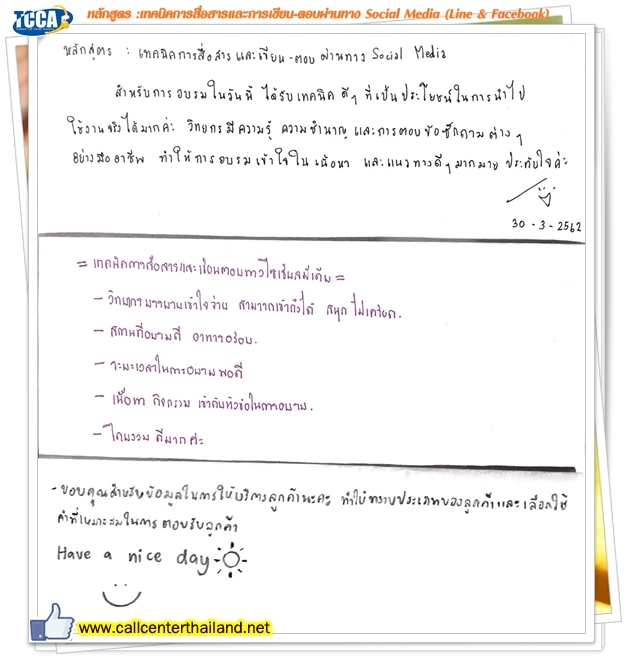 TCCA
หลักสูตร :เทคนิคการสื่อสารและการเขียน-ตอบผ่านทาง Social Media (Line & Facebook)
หลักสูตร : เทคนิคการสื่อสาร และเขียน-ตอบ ผ่านทาง Social Media
สำหรับการอบรมในวันนี้ ได้รับเทคนิค ดีๆ ที่เป็นประโยชน์ในการนำไป
ใช้งานจริงได้มากค่ะ วิทยากรมีความรู้ ความชำนาญ และการตอบข้อซักถามต่างๆ
อย่างมืออาชีพ ทำให้การอบรมเข้าใจในเนื้อหา และแนวทางดีๆมากมาย ประทับใจค่ะ
30 - 3 - 2562
= เทคนิคการสื่อสารและเขียนตอบทางโซเชียลมีเดีย =
- วิทยากรบรรยายเข้าใจง่าย สามารถเข้าถึงได้ สนุก ไม่เครียด.
- สถานที่อบรมดี อาหารอร่อย.
- ระยะเวลาในการอบรมพอดี
- เนื้อหา กิจกรรม เข้ากับหัวข้อในการอบรม.
- โดยรวม ดีมากค่ะ
- ขอบคุณสำหรับข้อมูลในการให้บริการลูกค้านะคะ ทำให้ทราบประเภทของลูกค้าและเลือกใช้
คำที่เหมาะสมในการตอบรับลูกค้า
Have a nice day
www.callcenterthailand.net